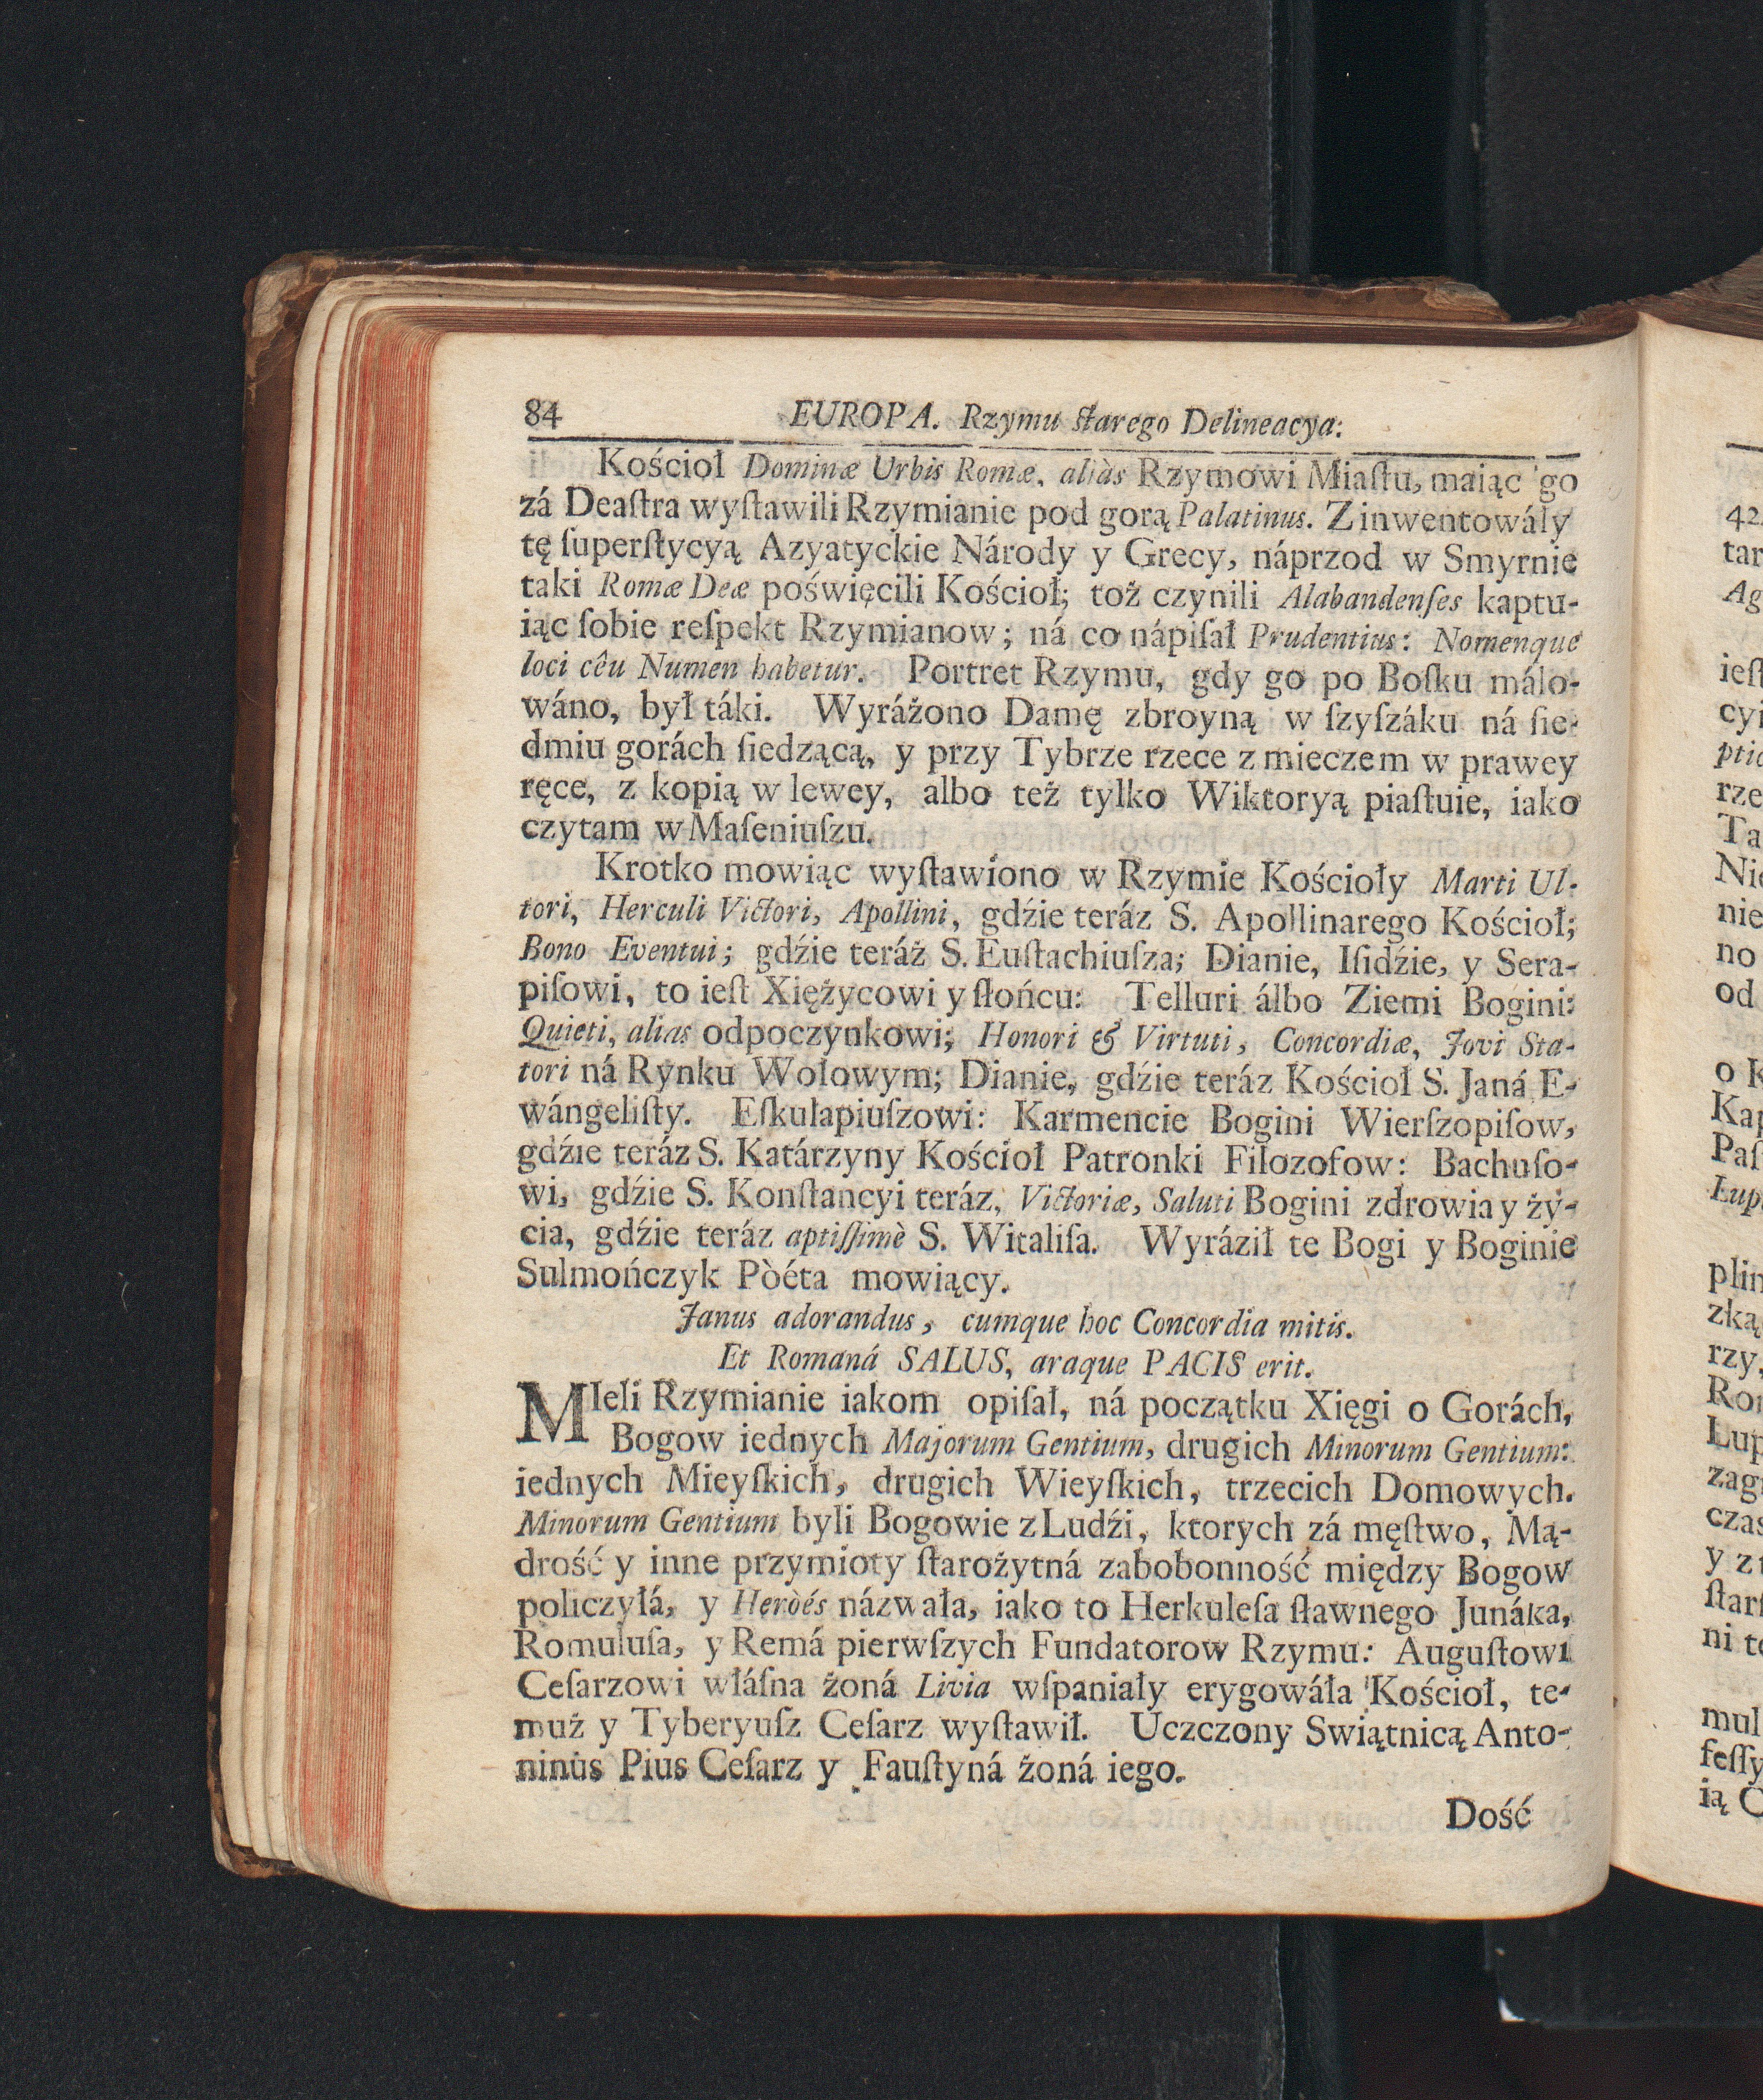 84 EUROPA. Rzymu ſtarego Delineacya:
Kościoł Dominæ Urbis Romæ, aliàs Rzymowi Miaſtu, maiąc go
zá Deaſtra wyſtawili Rzymianie pod gorą Palatinus. Zinwentowáły
tę ſuperſtycyą Azyatyckie Národy y Grecy, náprzod w Smyrnie
taki Romæ Deæ poświęcili Kościoł; toż czynili Alabandenſes kaptu-
iąc ſobie reſpekt Rzymianow; ná co nápiſał Prudentius: Nomenque
loci cêu Numen habetur. Portret Rzymu, gdy go po Boſku málo-
wáno, był táki. Wyráżono Damę zbroyną w ſzyſzáku ná ſie-
dmiu gorách ſiedzącą, y przy Tybrze rzece z mieczem w prawey
ręce, z kopią w lewey, albo też tylko Wiktoryą piaſtuie, iako
czytam w Maſeniuſzu.
Krotko mowiąc wyſtawiono w Rzymie Kościoły Marti Ul-
tori, Herculi Victori, Apollini, gdźie teráz S. Apollinarego Kościoł;
Bono Eventui; gdźie teráż S. Euſtachiuſza; Dianie, Iſidźie, y Sera-
piſowi, to ieſt Xiężycowi y ſłońcu: Telluri álbo Ziemi Bogini:
Quieti, alias odpoczynkowi; Honori & Virtuti, Concordiæ, Jovi Sta-
tori ná Rynku Wołowym; Dianie, gdźie teráz Kościoł S. Janá E-
wángeliſty. Eſkulapiuſzowi: Karmencie Bogini Wierſzopiſow,
gdźie teráz S. Katárzyny Kościoł Patronki Filozofow: Bachuſo-
wi, gdźie S. Konſtancyi teráz, Victoriæ, Saluti Bogini zdrowia y ży-
cia, gdźie teráz aptiſſimè S. Witaliſa. Wyráził te Bogi y Boginie
Sulmończyk Pòéta mowiący.
Janus adorandus, cumque hoc Concordia mitis.
Et Romaná SALUS, araque PACIS erit.
MIeli Rzymianie iakom opiſał, ná początku Xięgi o Gorách,
Bogow iednych Majorum Gentium, drugich Minorum Gentium:
iednych Mieyſkich, drugich Wieyſkich, trzecich Domowych.
Minorum Gentium byli Bogowie z Ludźi, ktorych zá męſtwo, Mą-
drość y inne przymioty ſtarożytná zabobonność między Bogow
policzyłá, y Heròés názwała, iako to Herkuleſa ſławnego Junáka,
Romuluſa, y Remá pierwſzych Fundatorow Rzymu: Auguſtowi
Ceſarzowi wláſna żoná Livia wſpaniały erygowáła Kościoł, te-
muż y Tyberyuſz Ceſarz wyſtawił. Uczczony Swiątnicą Anto-
ninus Pius Ceſarz y Fauſtyná żoná iego.
Dość
42
tar
Ag
ieſt
cyi
ptic
rze
Ta
Nie
nie
no
od
o K
Kap
Paſ
Lup
plin
zką
rzy,
Ron
Lup
zag
czas
y z
ſtarſ
ni t
mul
feſſy
ią C